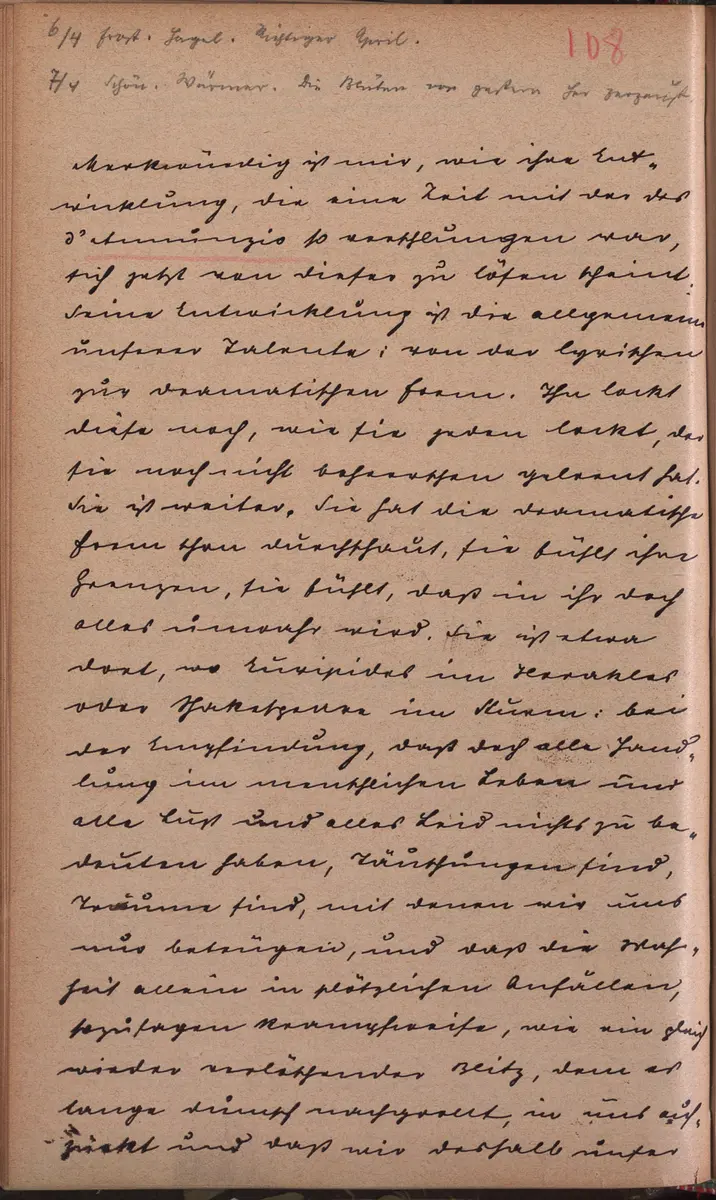 6/4 Frost. Hagel. Richtiger April.
108
7/4 Schön. Wärmer. Die Blüten von gestern her zerzaust.
Merkwürdig ist mir, wie ihre Ent-
wicklung, die eine Zeit mit der des
d'Annunzio so verschlungen war,
sich jetzt von dieser zu lösen scheint.
Seine Entwicklung ist die allgemeine
unserer Talente: von der lyrischen
zur dramatischen Form. Ihn lockt
diese noch, wie sie jeden lockt, der
sie noch nicht beherrschen gelernt hat.
Sie ist weiter. Sie hat die dramatische
Form schon durchschaut, sie fühlt ihre
Grenzen, sie fühlt, daß in ihr doch
alles unwahr wird. Sie ist etwa
dort, wo Euripides im Herakles
oder Shakespeare im Sturm: bei
der Empfindung, daß doch alle Hand-
lung im menschlichen Leben und
alle Lust und alles Leid nichts zu be-
deuten haben, Täuschungen sind,
Träume sind, mit denen wir uns
nur betrügen, und daß die Wahr-
heit allein in plötzlichen Anfällen,
sozusagen krampfweise, wie ein gleich
wieder verlöschender Blitz, dem es
lange dumpf nachgrollt, in uns auf-
zückt und daß wir deshalb unser